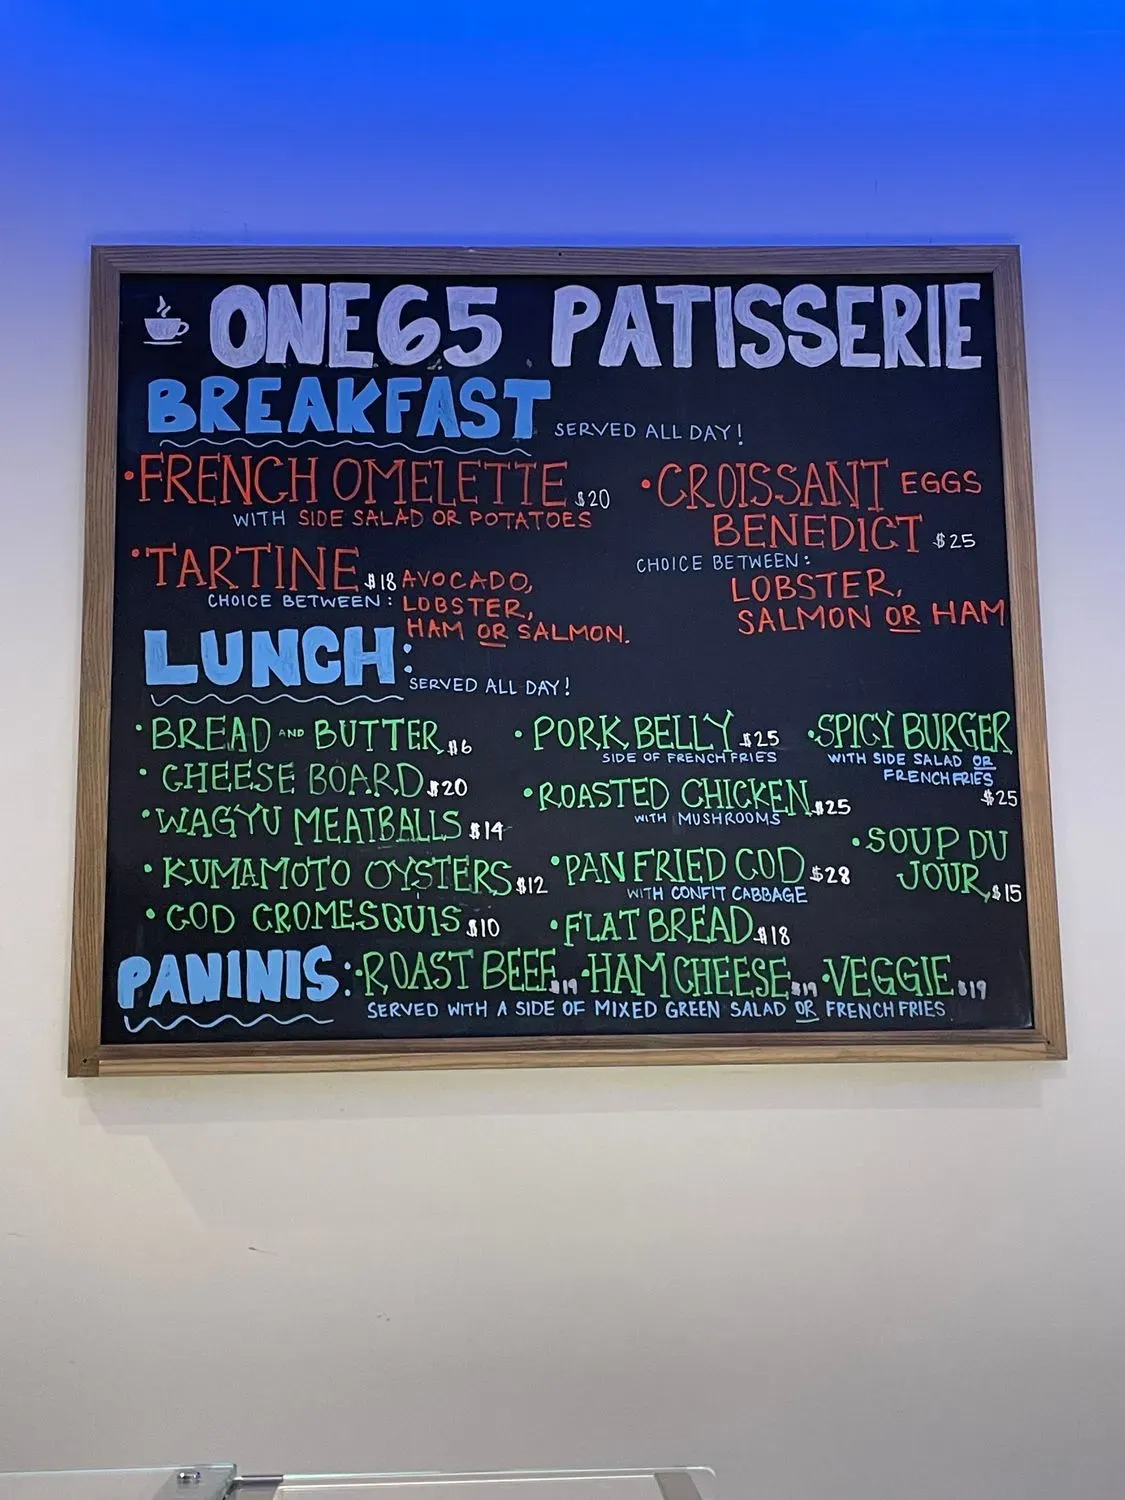 ONE65 PATISSERIE
BREAKFAST SERVED ALL DAY!
• FRENCH OMELETTE $20
WITH SIDE SALAD OR POTATOES
• CROISSANT EGGS
BENEDICT $25
CHOICE BETWEEN:
LOBSTER,
SALMON OR HAM
• TARTINE $18 AVOCADO,
CHOICE BETWEEN: LOBSTER,
HAM OR SALMON.
LUNCH:
SERVED ALL DAY!
• BREAD AND BUTTER $6
• CHEESE BOARD $20
• WAGYU MEATBALLS $14
• KUMAMOTO OYSTERS $12
• COD CROMESQUIS $10
• PORK BELLY $25
SIDE OF FRENCH FRIES
• ROASTED CHICKEN $25
WITH MUSHROOMS
• PAN FRIED COD $28
WITH CONFIT CABBAGE
• FLAT BREAD $18
• SPICY BURGER
WITH SIDE SALAD OR
FRENCH FRIES
$25
• SOUP DU
JOUR $15
PANINIS: • ROAST BEEF $19 • HAM CHEESE $19 • VEGGIE $19
SERVED WITH A SIDE OF MIXED GREEN SALAD OR FRENCH FRIES